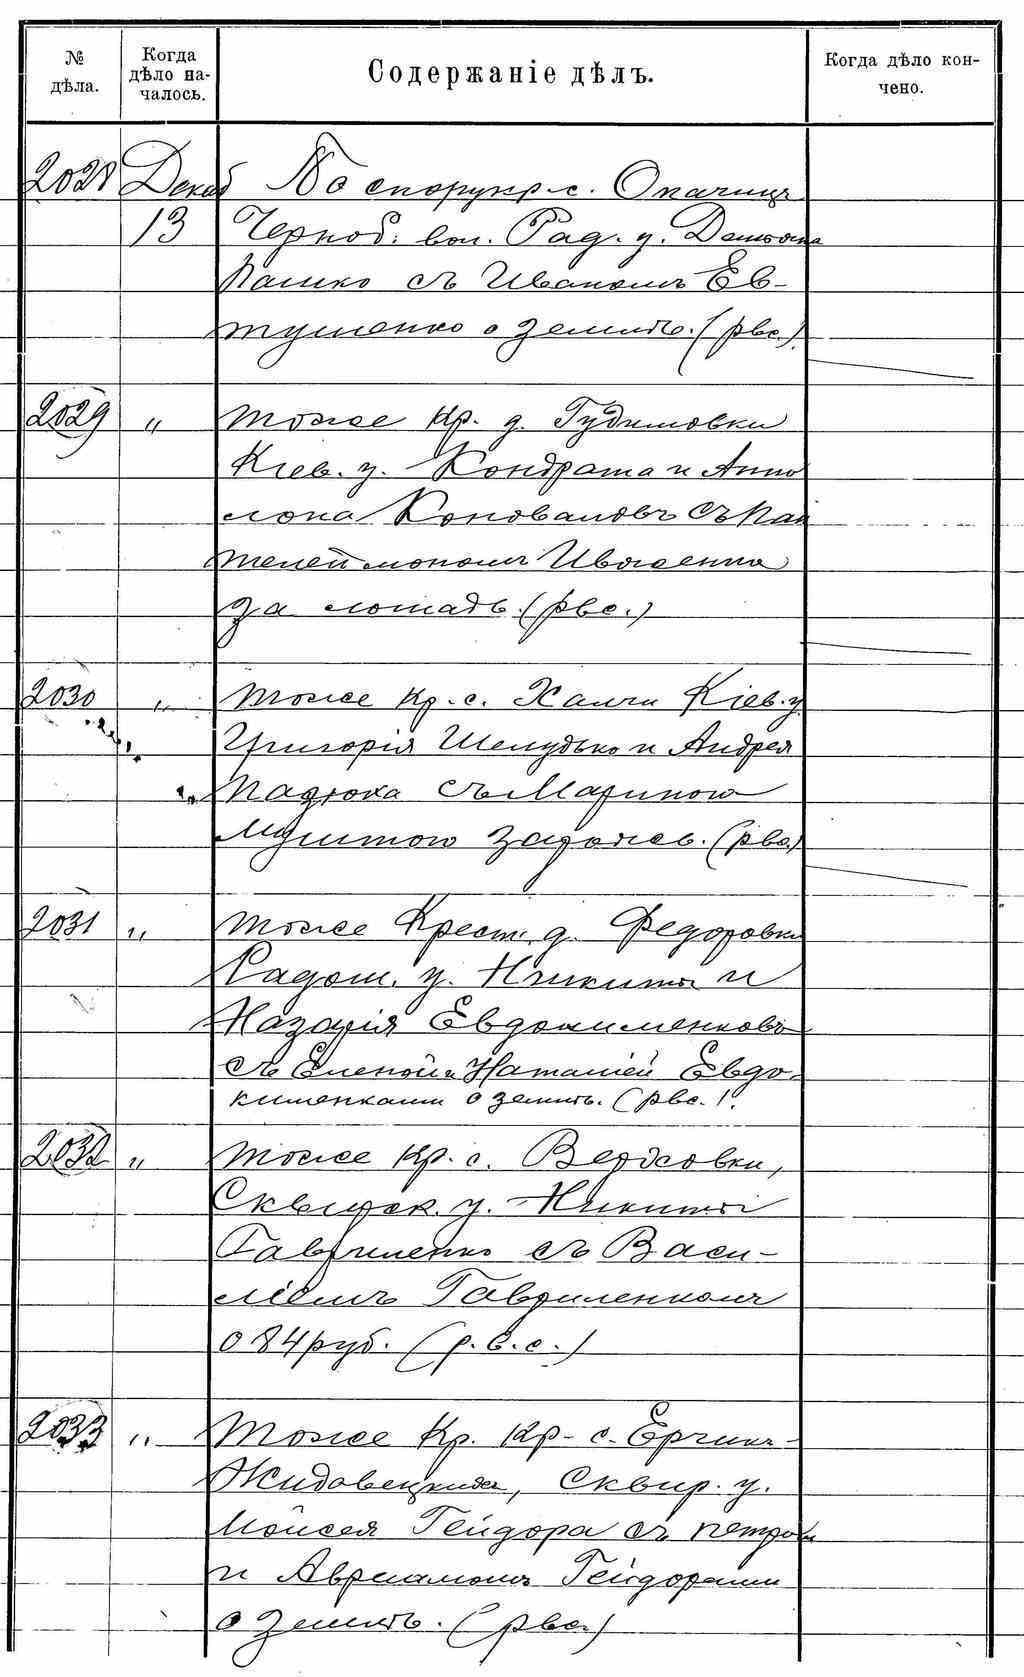 № дѣла.
Когда дѣло на-
чалось.
Содержаніе дѣлъ.
Когда дѣло кон-
чено.
2028 Декаб По спору кр. с. Опачицъ
13 Черноб: вол. Рад. у.
Пашко съ Иваномъ Ев-
тушенко о землѣ. (рвс.)
2029 " тоже кр. д. Гудимовки
Кіев. у. Кондрата и Аппо
лона Коноваловъ съ Пан
телеймономъ Иващенко
за лошадь. (рвс.)
2030 " тоже кр. с. Халчи Кіев. у.
Григорія Шелудько и Андрея
Падюка съ Мариною
(рвс)
2031 " тоже Крест. д. Федоровки
Радом. у. Никиты и
Назарія Евдокименковъ
съ Еленой и Наталіей Евдо-
кименками о землѣ. (рвс.).
2032 " тоже кр. с. Вербовки,
Сквирск. у. Никиты
Гавриленко съ Васи-
ліемъ Гавриленкомъ
о 84 руб. (р.в.с.)
2033 " тоже Кр. кр-с. Ерчикъ-
Жидовецкихъ, Сквир. у.
Мойсея Гейдора съ Петром
и Авраамомъ Гейдорами
о землѣ. (рвс.)